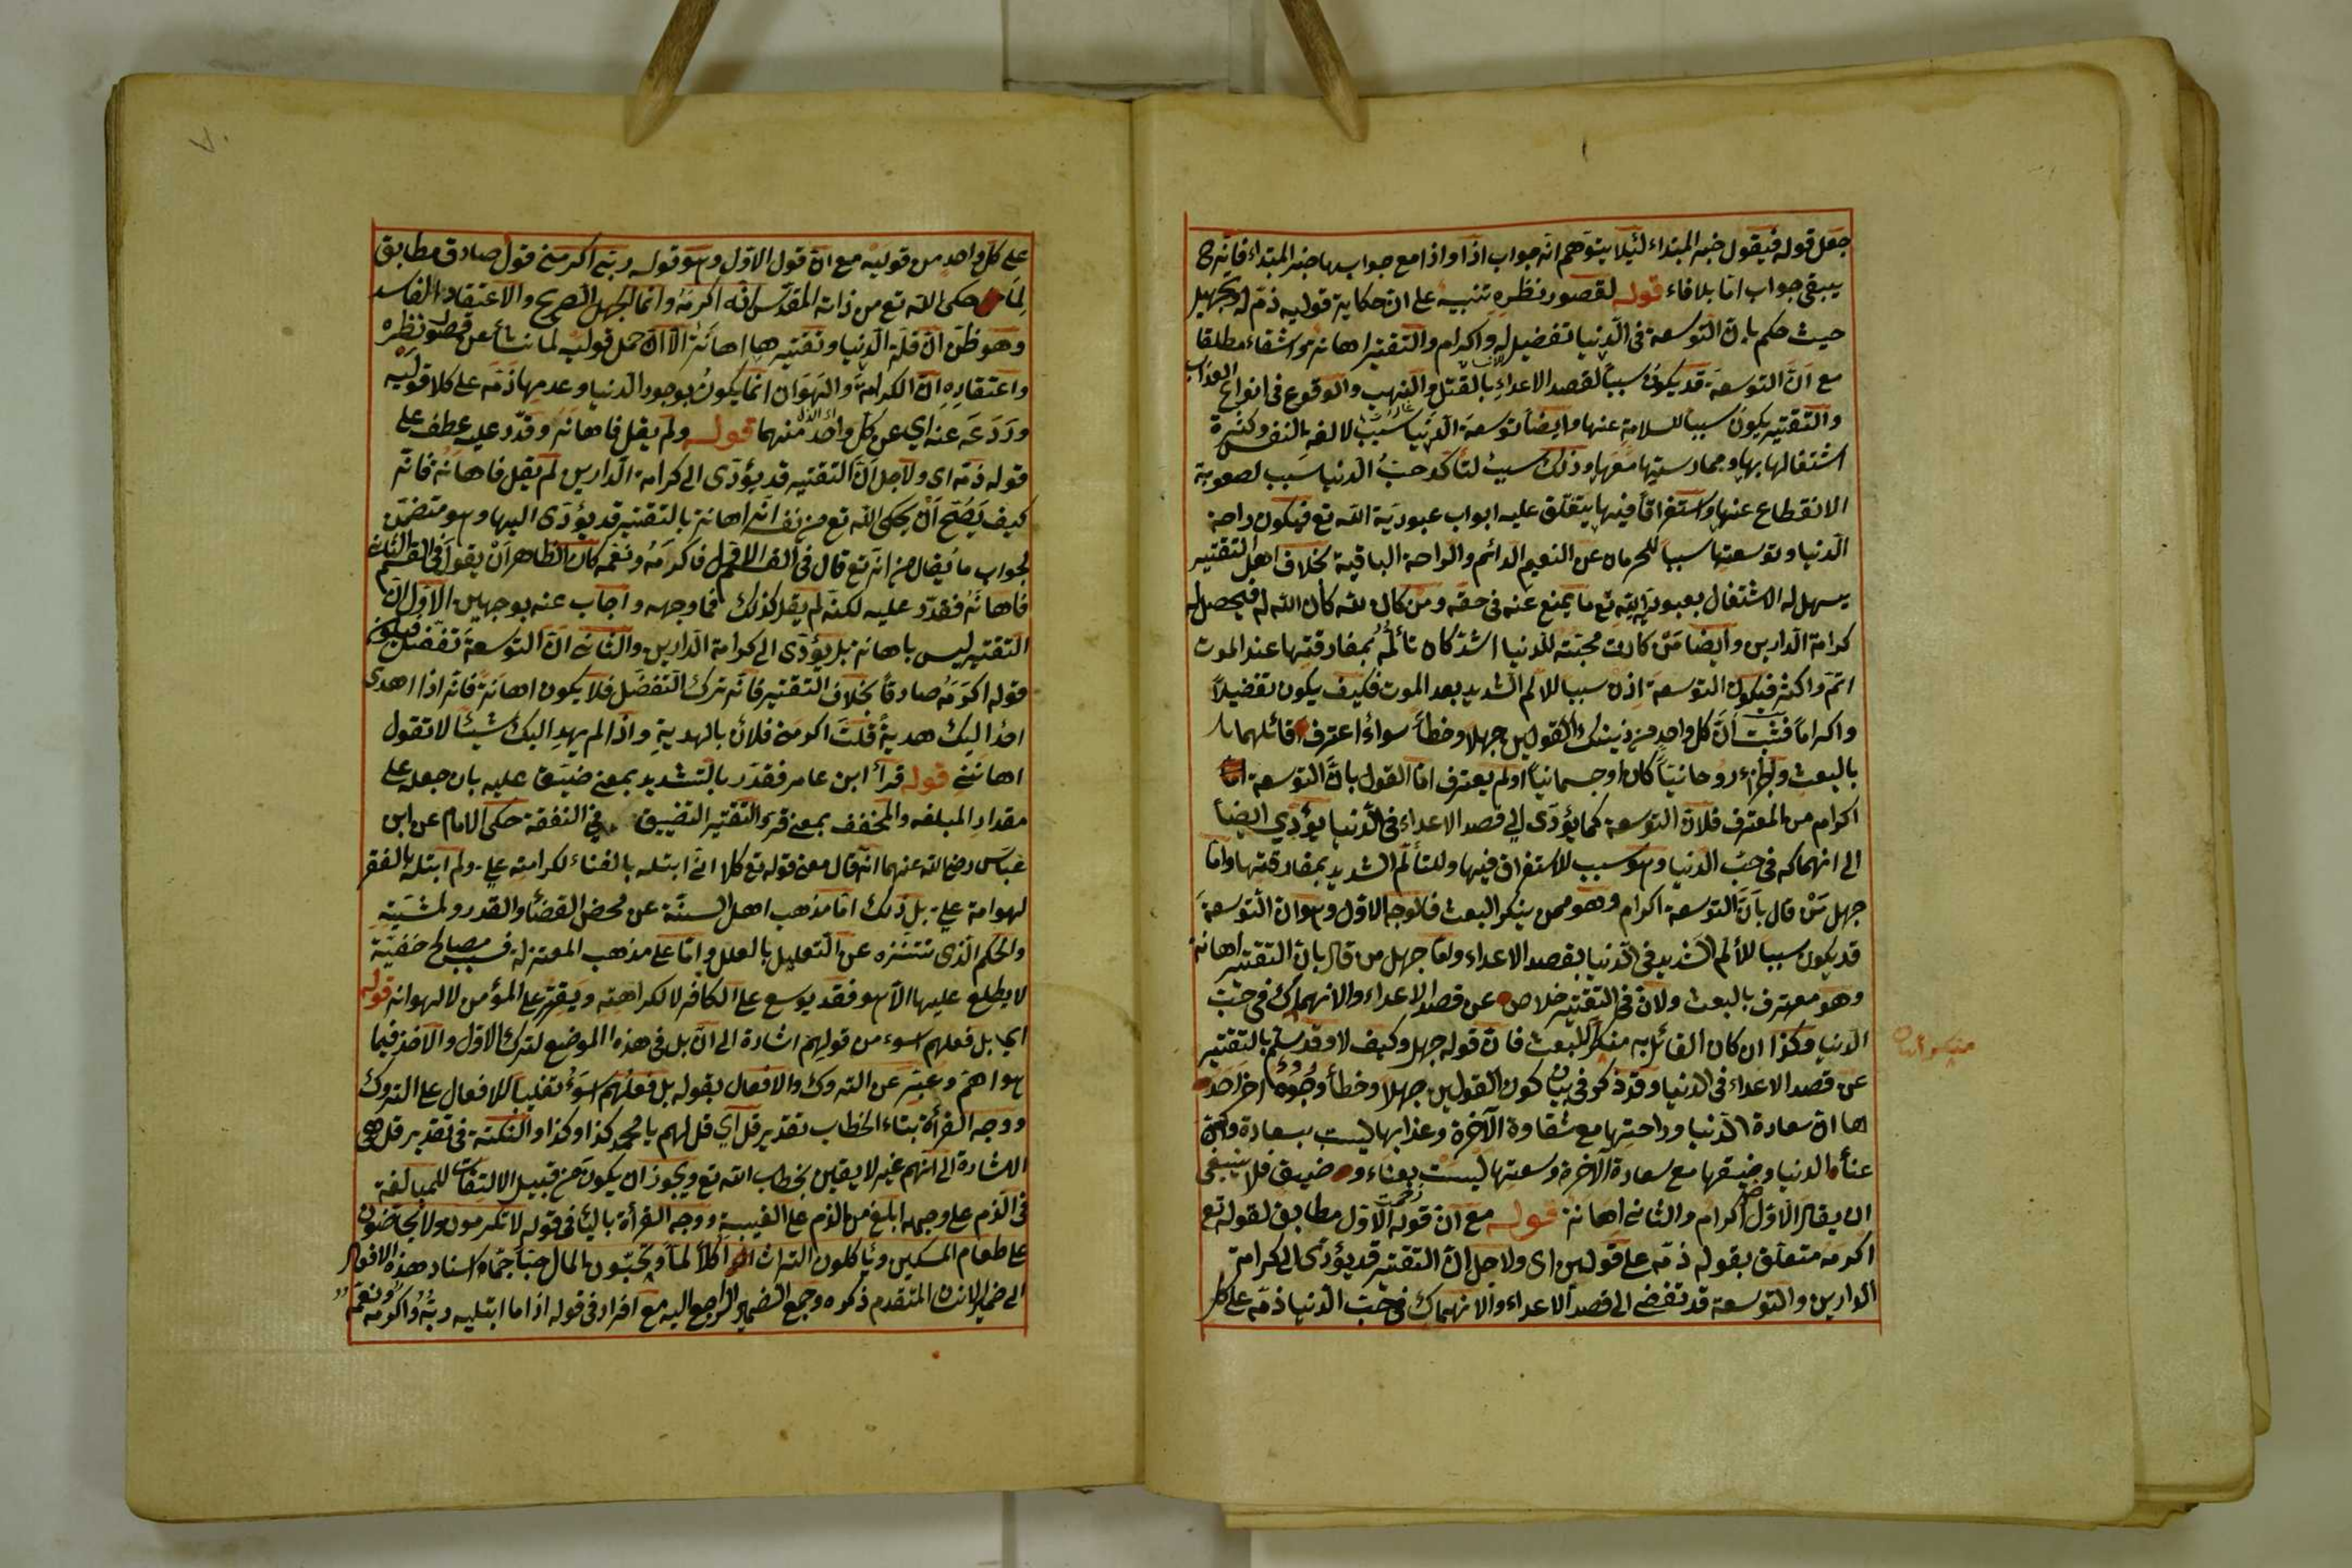 جعل قوله فيقول خبر المبتداء لئيلا يتوهم انه جواب اذا واذا مع جوابها خبر المبتداء فانه ح
يبقى جواب اما بلا فاء قوله لقصور نظره تنبيه على ان حكاية قوليه ذم له وتجهيل
حيث حكم بان التوسعة فى الدنيا تفضيل له واكرام والتقتير اهانة واشقاء مطلقا
مع ان التوسعة قد يكون سببا لقصد الاعداء بالقتل والنهب والوقوع فى انواع العذاب
والتقتير يكون سببا للسلامة عنها وايضا توسعة الدنيا سبب لالفة النفس وكثرة
اشتغالها بها وممارستها معها وذلك سبب لتأكد حب الدنيا سبب لصعوبة
الانقطاع عنها واستغراقا فيها يتغلق عليه ابواب عبودية الله تع فيكون راحة
الدنيا وتوسعتها سببا للحرمان عن النعيم الدائم والراحة الباقية بخلاف اهل التقتير
يسهل له الاشتغال بعبودية الله تع ما يمنع عنه فى حقه ومن كان لله كان الله له فيحصل له
كرامة الدارين وايضا من كانت محبته للدنيا اشد كان تألمه بمفارقتها عند الموت
اتم واكثر فيكون التوسعة اذن سببا للالم الشديد بعد الموت فكيف يكون تفضيلا
واكراما فثبت ان كل واحد من ذينك القولين جهلا وخطأ سواء اعترف قائلهما
بالبعث والجزاء روحانيا كان او جسمانيا اولم يعترف اما القول بان التوسعة
اكرام من المعترف فلان التوسعة كما يؤدى الى قصد الاعداء فى الدنيا يؤدي ايضا
الى انهماكه فى حب الدنيا وهو سبب للاستغراق فيها وللتألم الشديد بمفارقتها واما
جهل من قال بان التوسعة اكرام وهو ممن ينكر البعث فالوجه الاول وهو ان التوسعة
قد يكون سببا للألم الشديد فى الدنيا بقصد الاعداء واما جهل من قال بان التقتير اهانة
وهو معترف بالبعث ولان فى التقتير خلاص عن قصد الاعداء والانهماك فى حب
الدنيا وكذا ان كان القائل به منكرا للبعث فان قوله جهل وكيف لا وقد سلم بالتقتير
عن قصد الاعداء فى الدنيا وقد ذكر فى بيان كون القولين جهلا وخطأ وجوه اخر احد
ها ان سعادة الدنيا وراحتها مع شقاوة الآخرة وعذابها ليست بسعادة وكذا
عناء الدنيا وضيقها مع سعادة الآخرة وسعتها ليست بعناء و ضيق فلا ينبغى
ان يقال الاول اكرام والثانى اهانة قوله مع ان قوله الاول مطابق لقوله تع
اكرمه متعلق بقوله ذمه على قولين اى ولاجل ان التقتير قد يؤدى الى كرامة
الدارين والتوسعة قد تفضى الى قصد الاعداء والانهماك فى حب الدنيا ذمه على كل
على كل واحد من قوليه مع ان قول الاول وهو قوله ربى اكرمنى قول صادق مطابق
لما حكى الله تع من ذاته المقدس انه اكرمه وانما الجهل الصريح والاعتقاد الفاسد
وهو ظن ان قلة الدنيا وتقتيرها اهانة الا ان حمل قوليه لما نشأ عن قصور نظره
واعتقاده ان الكرامة والهوان انما يكون بوجود الدنيا وعدمها ذمه على كلا قوليه
وردعه عنه اي عن كل واحد منهما قوله ولم يقل فاهانه وقدر عليه عطف على
قوله ذمه اى ولاجل ان التقتير قد يؤدى الى كرامة الدارين لم يقل فاهانه فانه
كيف يصح ان يحكى الله تع من نفسه انه اهانه بالتقتير قد يؤدى اليها وهو متضمن
لجواب ما يقال من انه تع قال فى القسم الاول فاكرمه ونعمه كان الظاهر ان يقول فى القسم الثانى
فاهانه فقدر عليه لكنه لم يقل كذلك فما وجهه واجاب عنه بوجهين الاول ان
التقتير ليس باهانة بل يؤدى الى كرامة الدارين والثانى ان التوسعة تفضل فيكون
قوله اكرمه صادقا بخلاف التقتير فانه ترك التفضل فلا يكون اهانة فانه اذا اهدى
احد اليك هدية قلت اكرمنى فلان بالهدية واذا لم يهد اليك شيئا لا تقول
اهاننى قوله قرأ ابن عامر فقدر بالتشديد بمعنى ضيق عليه بان جعله على
مقدار المبلغة والمخفف بمعنى قتر والتقتير التضييق فى النفقة حكى الامام عن ابن
عباس رضى الله عنهما انه قال معنى قوله تع كلا انى ابتله بالغناء لكرامته على ولم ابتله بالفقر
لهوانه على بل ذلك اما مذهب اهل السنة عن محض القضأ والقدر ولمشية
والحكم الذى تتنزه عن التعليل بالعلل واما على مذهب المعتزلة فبسبب مصالح خفية
لا يطلع عليها الا هو فقد يوسع على الكافر لا لكرامته ويقتر على المؤمن لا لهوانه قوله
اي بل فعلهم اسوء من قولهم اشارة الى ان بل فى هذه الموضع لترك الاول والاخذ فيما
هو اهم وعبر عن التروك والافعال بقوله بل فعلهم اسوء تغليبا للافعال على التروك
ووجه القرأة بتاء الخطاب تقدير قل اي قل لهم يا محمد كذا وكذا والنكتة فى تقدير قل هى
الاشارة الى انهم غير لايقين بخطاب الله تع ويجوز ان يكون من قبيل الالتفات للمبالغة
فى الذم على وجه ابلغ من الذم على الغيبة ووجه القرأة بالياء فى قوله لا تكرمون ولا تحاضون
على طعام المسكين ويأكلون التراث اكلا لما وتحبون المال حبا جما اسناد هذه الافعال
الى ضمير الانسان المتقدم ذكره وجمع الضمير الراجع اليه مع افراد فى قوله اذا ما ابتليه ربه واكرمه ونعمه